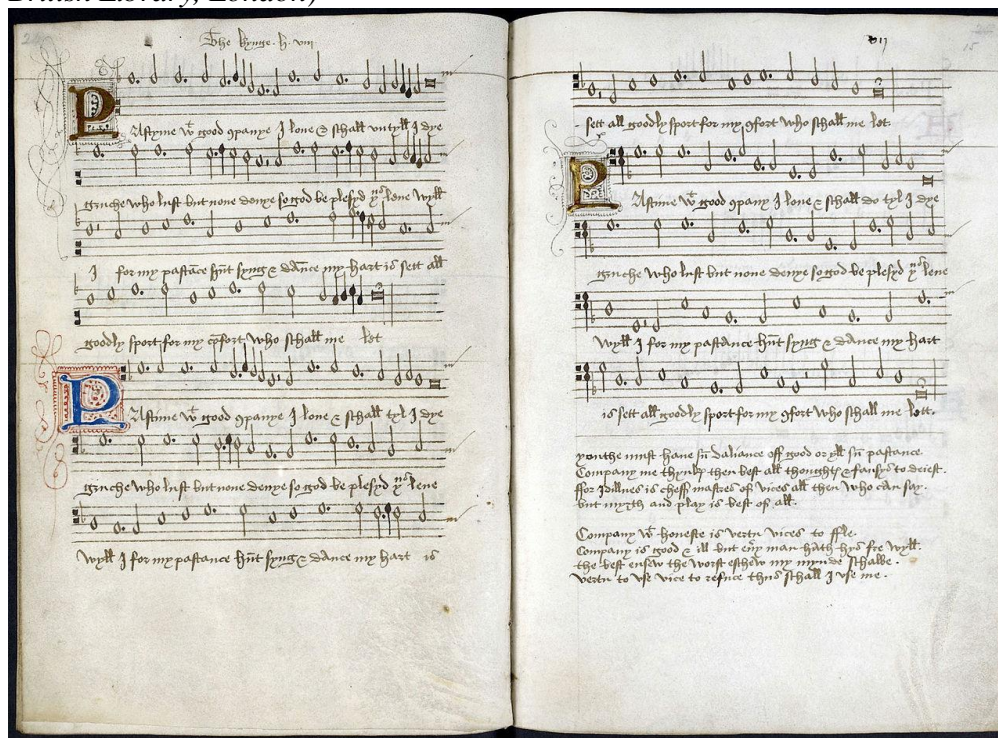 British Library, London)
The kynge . h . viii
PAstyme wt good 9panye I love & schall untyll I dye
gruche who lust but none denye so god be plesyd yus leve wyll
I for my pastāce hūt syng & dāce my hart is sett all
goodly sport for my cōfort who schall me let
PAstime wt good 9panye I love & schall tyl I dye
gruche who lust but none denye so god be plesyd yus leve
wyll I for my pastance hūt syng & dance my hart is
15
sett all goodly sport for my 9fort who schall me let
PAstime wt good 9pany I love & schall do tyl I dye
gruche who lust but none denye so god be plesyd yus leve
wyll I for my pastance hūt syng & dance my hart
is sett all goodly sport for my 9fort who schall me lett.
youthe must have sū daliance off good or yll sū pastance.
Company me thynks then best all thoughts & fansys to deiest.
ffor Idillnes is cheff mastres of vices all then who can say.
but myrth and play is best of all.
Company wt honeste is vertu vices to ffle.
Company is good & ill but evy man hath hys fre wyll.
the best ensew the worst eschew my mynde schalbe.
vertu to use vice to refuce thus schall I use me.